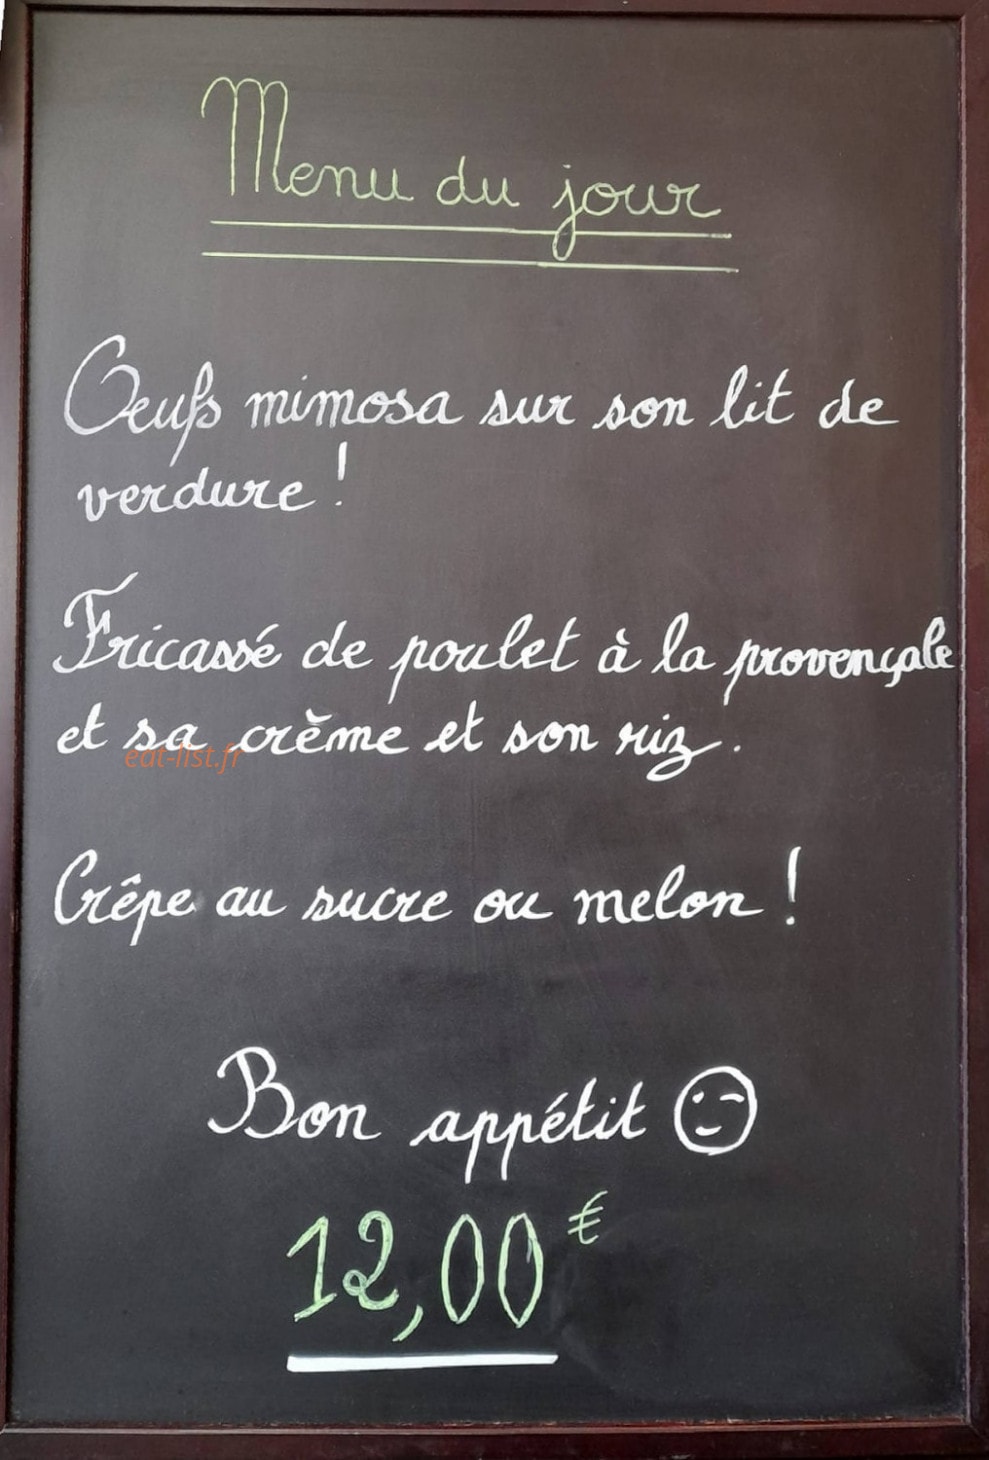 Menu du jour
Oeufs mimosa sur son lit de
verdure !
Fricassé de poulet à la provençale
et sa crème et son riz.
eat-list.fr
Crêpe au sucre ou melon !
Bon appétit
12,00 €